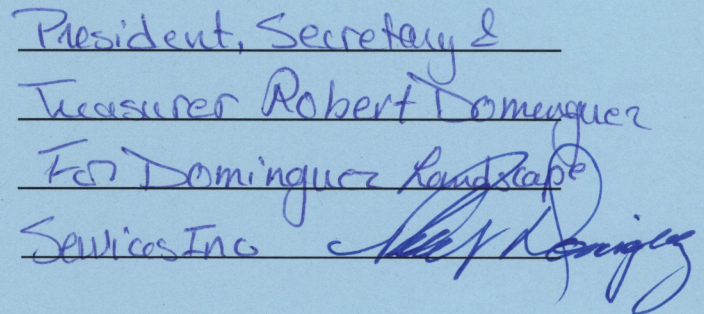 President, Secretary &
Treasurer Robert Domenguez
For Dominguez Landscape
Services Inc